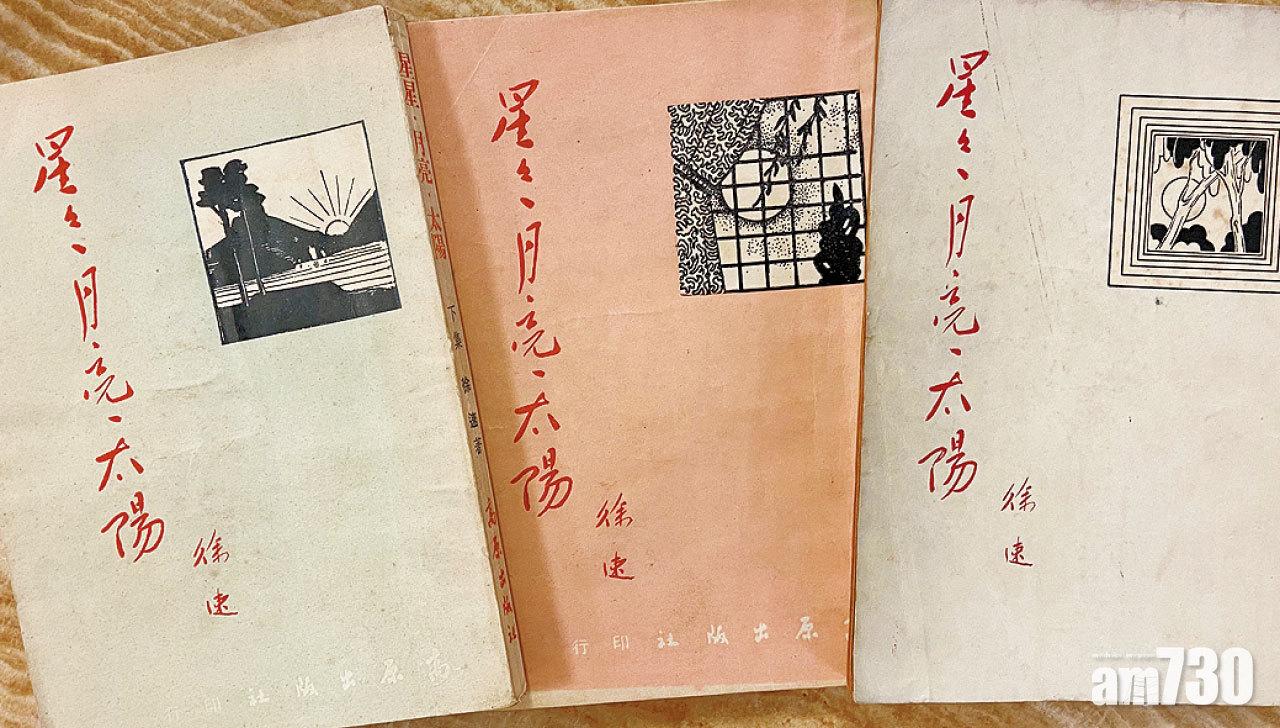 星々、月亮、太陽
徐速
高原出版社印行
星星·月亮·太陽 下集 徐速著 高原出版社
星々、月亮、太陽
徐速
原出版社印行
星々、月亮、太陽
徐速
am730